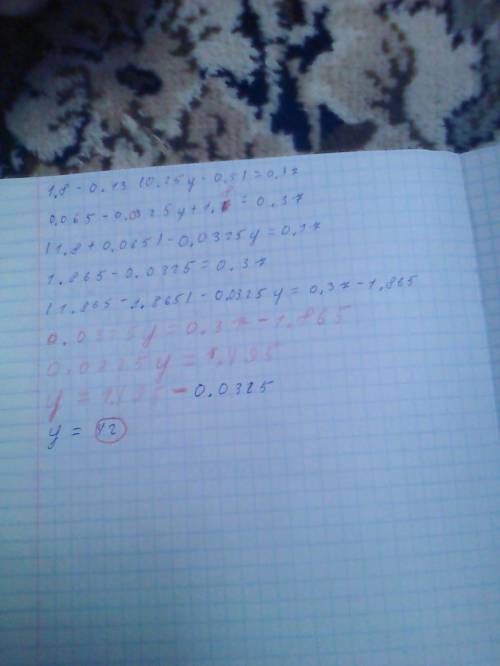 1.8 - 0.13 (0.25y - 0.5) = 0.37
0.065 - 0.0325y + 1.8 = 0.37
(1.8 + 0.065) - 0.0325y = 0.37
1.865 - 0.0325 = 0.37
(1.865 - 1.865) - 0.0325y = 0.37 - 1.865
0.0325y = 0.37 - 1.865
0.0325y = 1.495
y = 1.495 - 0.0325
y =